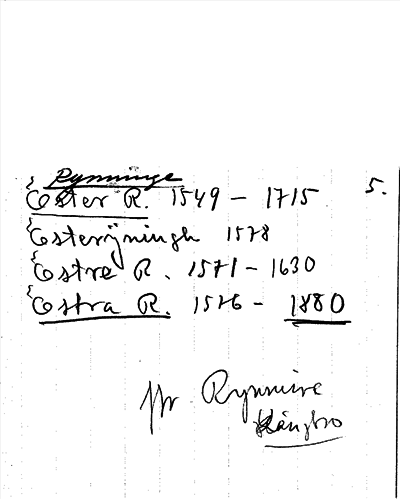 Rynninge
Öster R. 1549 - 1715 5.
Österÿningh 1578
Östre R. 1571 - 1630
Östra R. 1576 - 1880
Rynninge
Hängbo